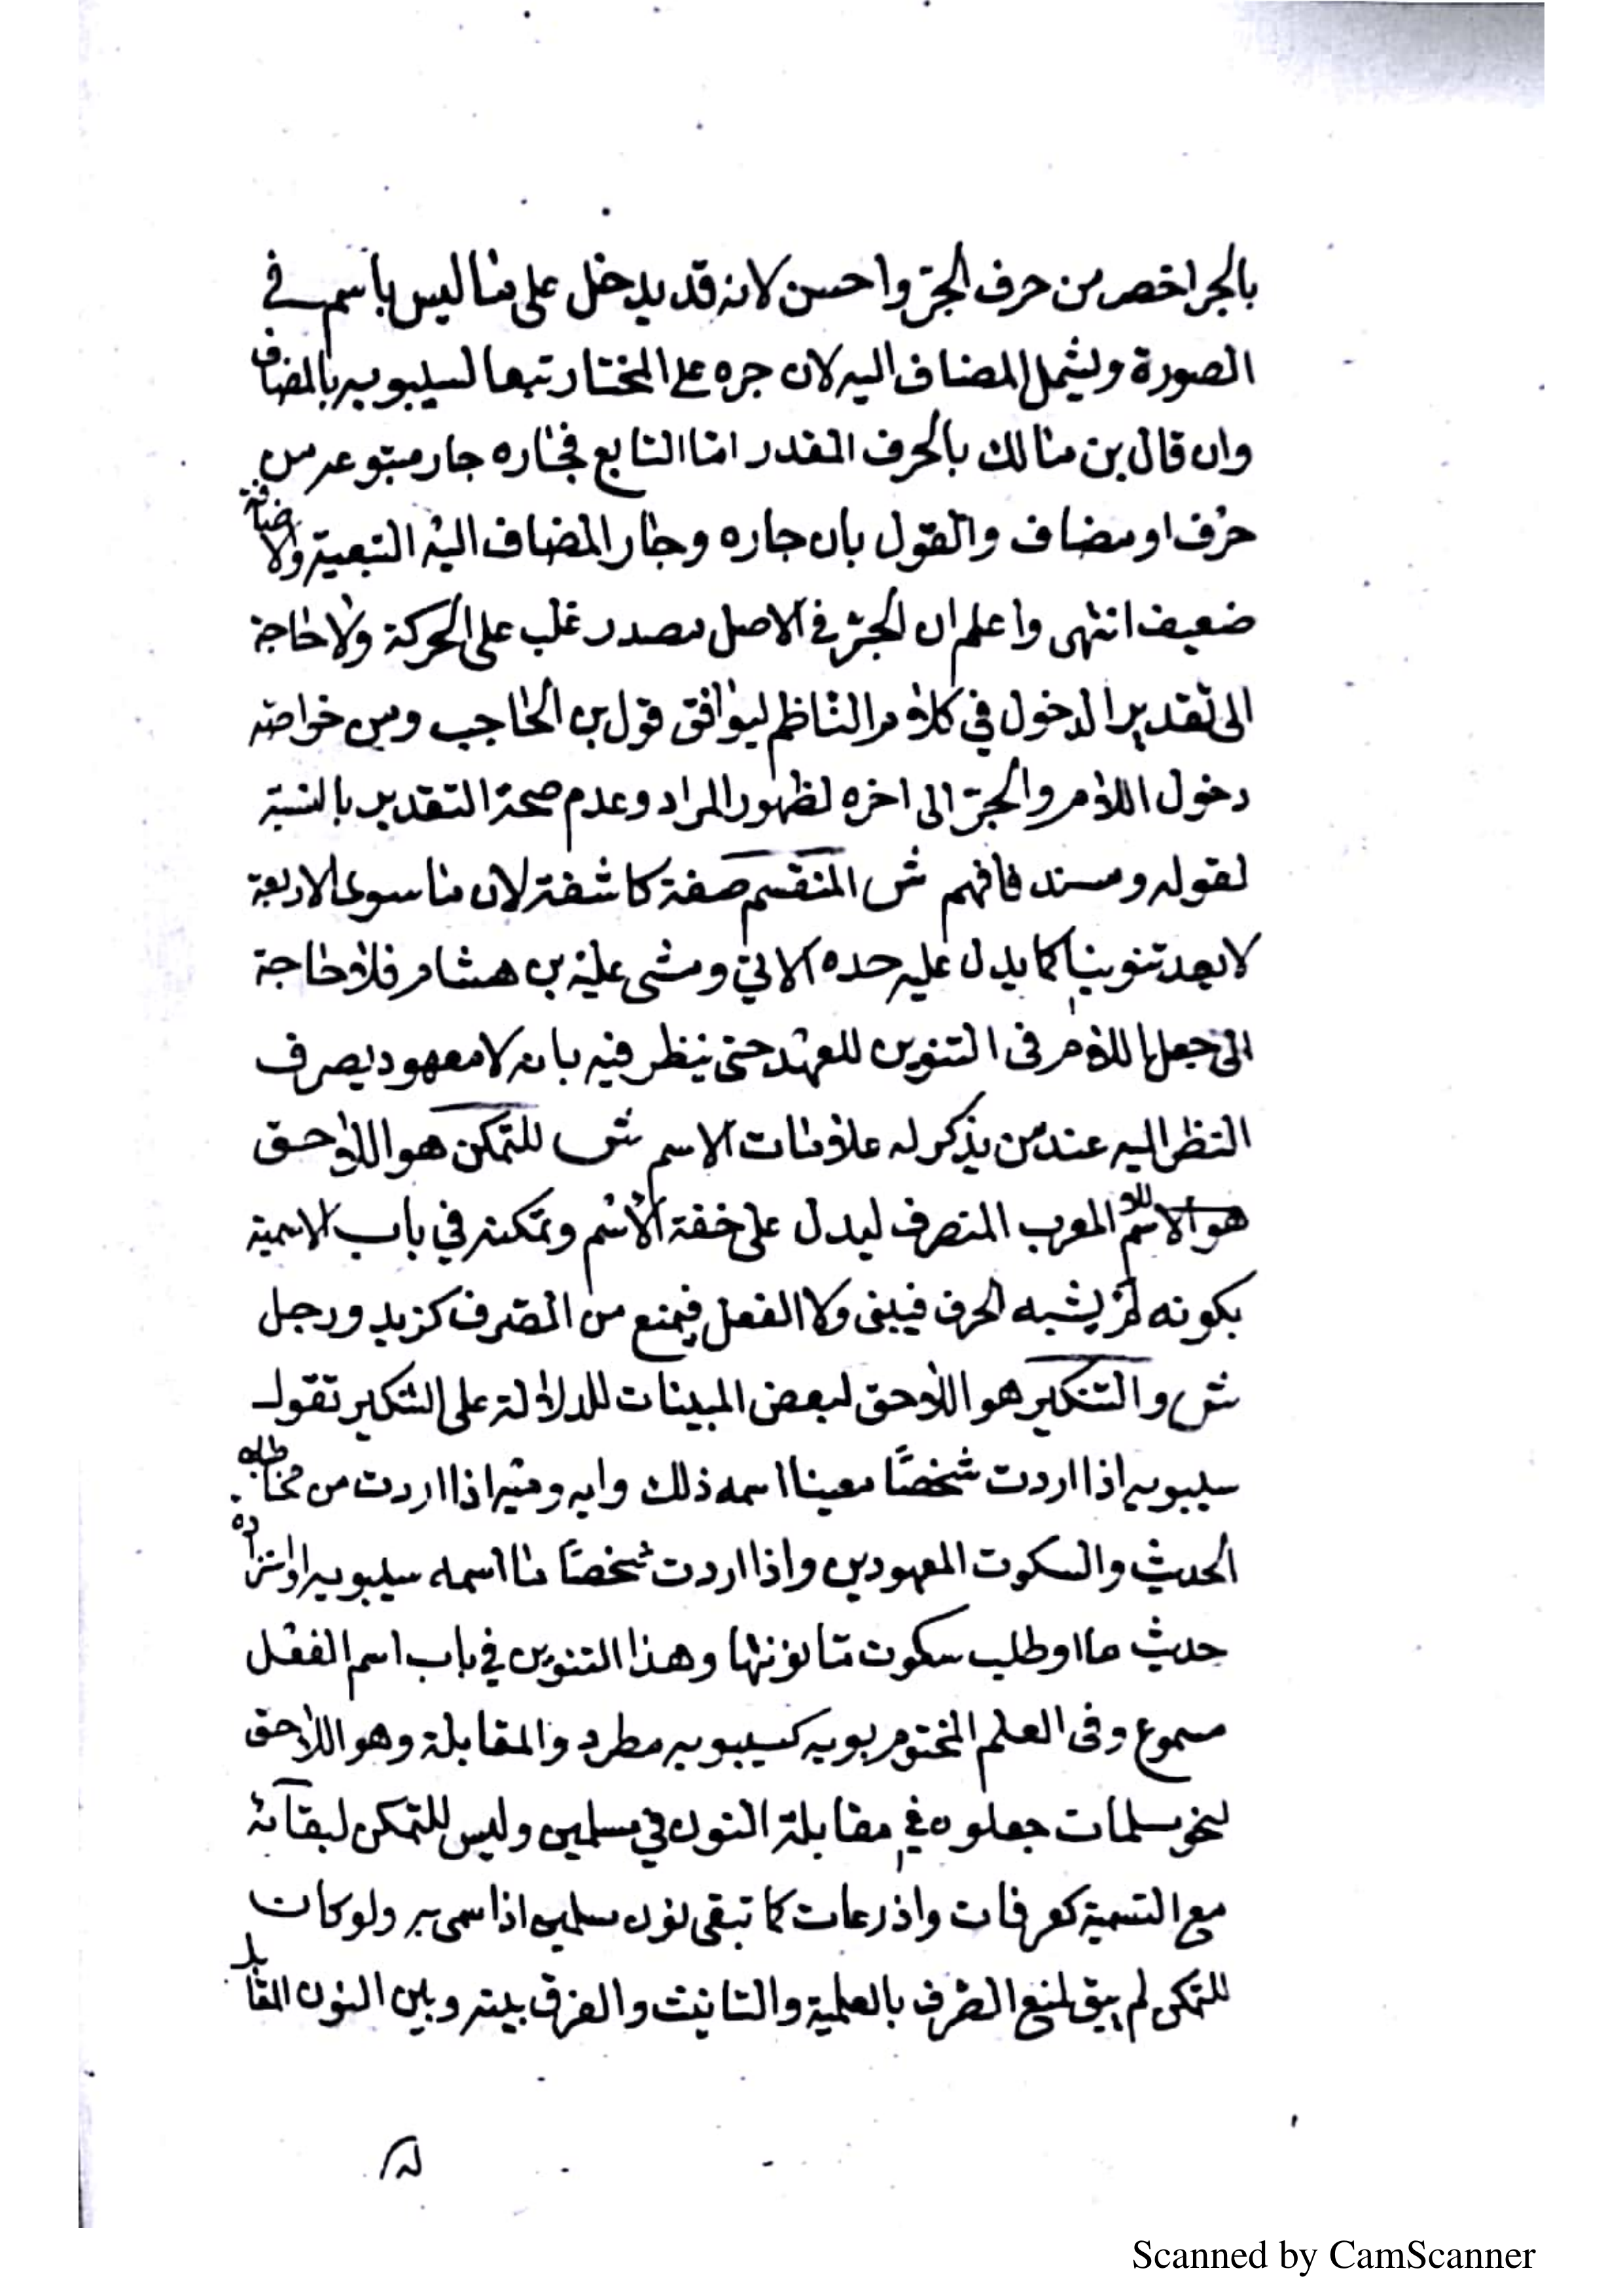 بالجر اخصر من حرف الجرّ واحسن لانه قد يدخل على ما ليس باسم في
الصورة وليشمل المضاف اليه لان جره على المختار تبعا لسيبويه بالمضاف
وان قال بن مالك بالحرف المقدر اما التابع فجاره جار متبوعه من
حرف او مضاف والقول بان جاره وجار المضاف اليه التبعية والاضافة
ضعيف انتهى واعلم ان الجرّ في الاصل مصدر غلب على الحركة ولا حاجة
الى تقدير الدخول في كلام الناظم ليوافق قول بن الحاجب ومن خواصه
دخول اللام والجرّ الى اخره لظهور المراد وعدم صحة التقدير بالنسبة
لقوله ومسند فافهم ش المنقسم صفة كاشفة لان ما سوى الاربعة
لا يعد تنوينا كما يدل عليه حده الاتي ومشى عليه بن هشام فلا حاجة
الى جعل اللام في التنوين للعهد حتى ينظر فيه بانه لا معهود يصرف
النظر اليه عند من يذكر له علامات الاسم ش للتمكن هو اللاحق
هو الاسم المعرب المنصرف ليدل على خفة الاسم وتمكنه في باب الاسمية
بكونه لم يشبه الحرف فيبنى ولا الفعل فيمنع من الصرف كزيد ورجل
ش والتنكير هو اللاحق لبعض المبينات للدلالة على التنكير تقول
سيبويه اذا اردت شخصًا معينا اسمه ذلك وايه وصه اذا اردت من مخاطبه
الحديث والسكوت المعهودين واذا اردت شخصًا ما اسمه سيبويه او استزاده
حديث ما او طلب سكوت ما نونتها وهذا التنوين في باب اسم الفعل
مسموع وفي العلم المختوم بويه كسيبويه مطرد والمقابلة وهو اللاحق
لنحو مسلمات جعلوه في مقابلة النون في مسلمين وليس للتمكن لبقائه
مع التسمية كعرفات واذرعات كما تبقى نون مسلمين اذا سمى به ولو كان
للتمكن لم يبق لمنع الصرف بالعلمية والتانيث والفرق بينه وبين النون المقابل
Scanned by CamScanner